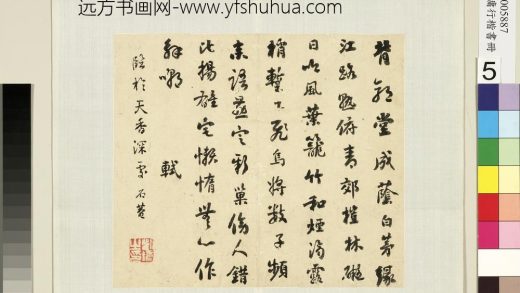 远方书画网-www.yfshuhua.com
背郭堂成蔭白茅緣
江路熟俯青郊榿林礙
日吟風葉籠竹和煙滴露
梢暫下飛烏將數子頻
来語燕定新巢傍人錯
比揚雄宅懶惰無心作
解嘲 軾
臨於天香深處 石菴
005887
墉行楷書冊
5